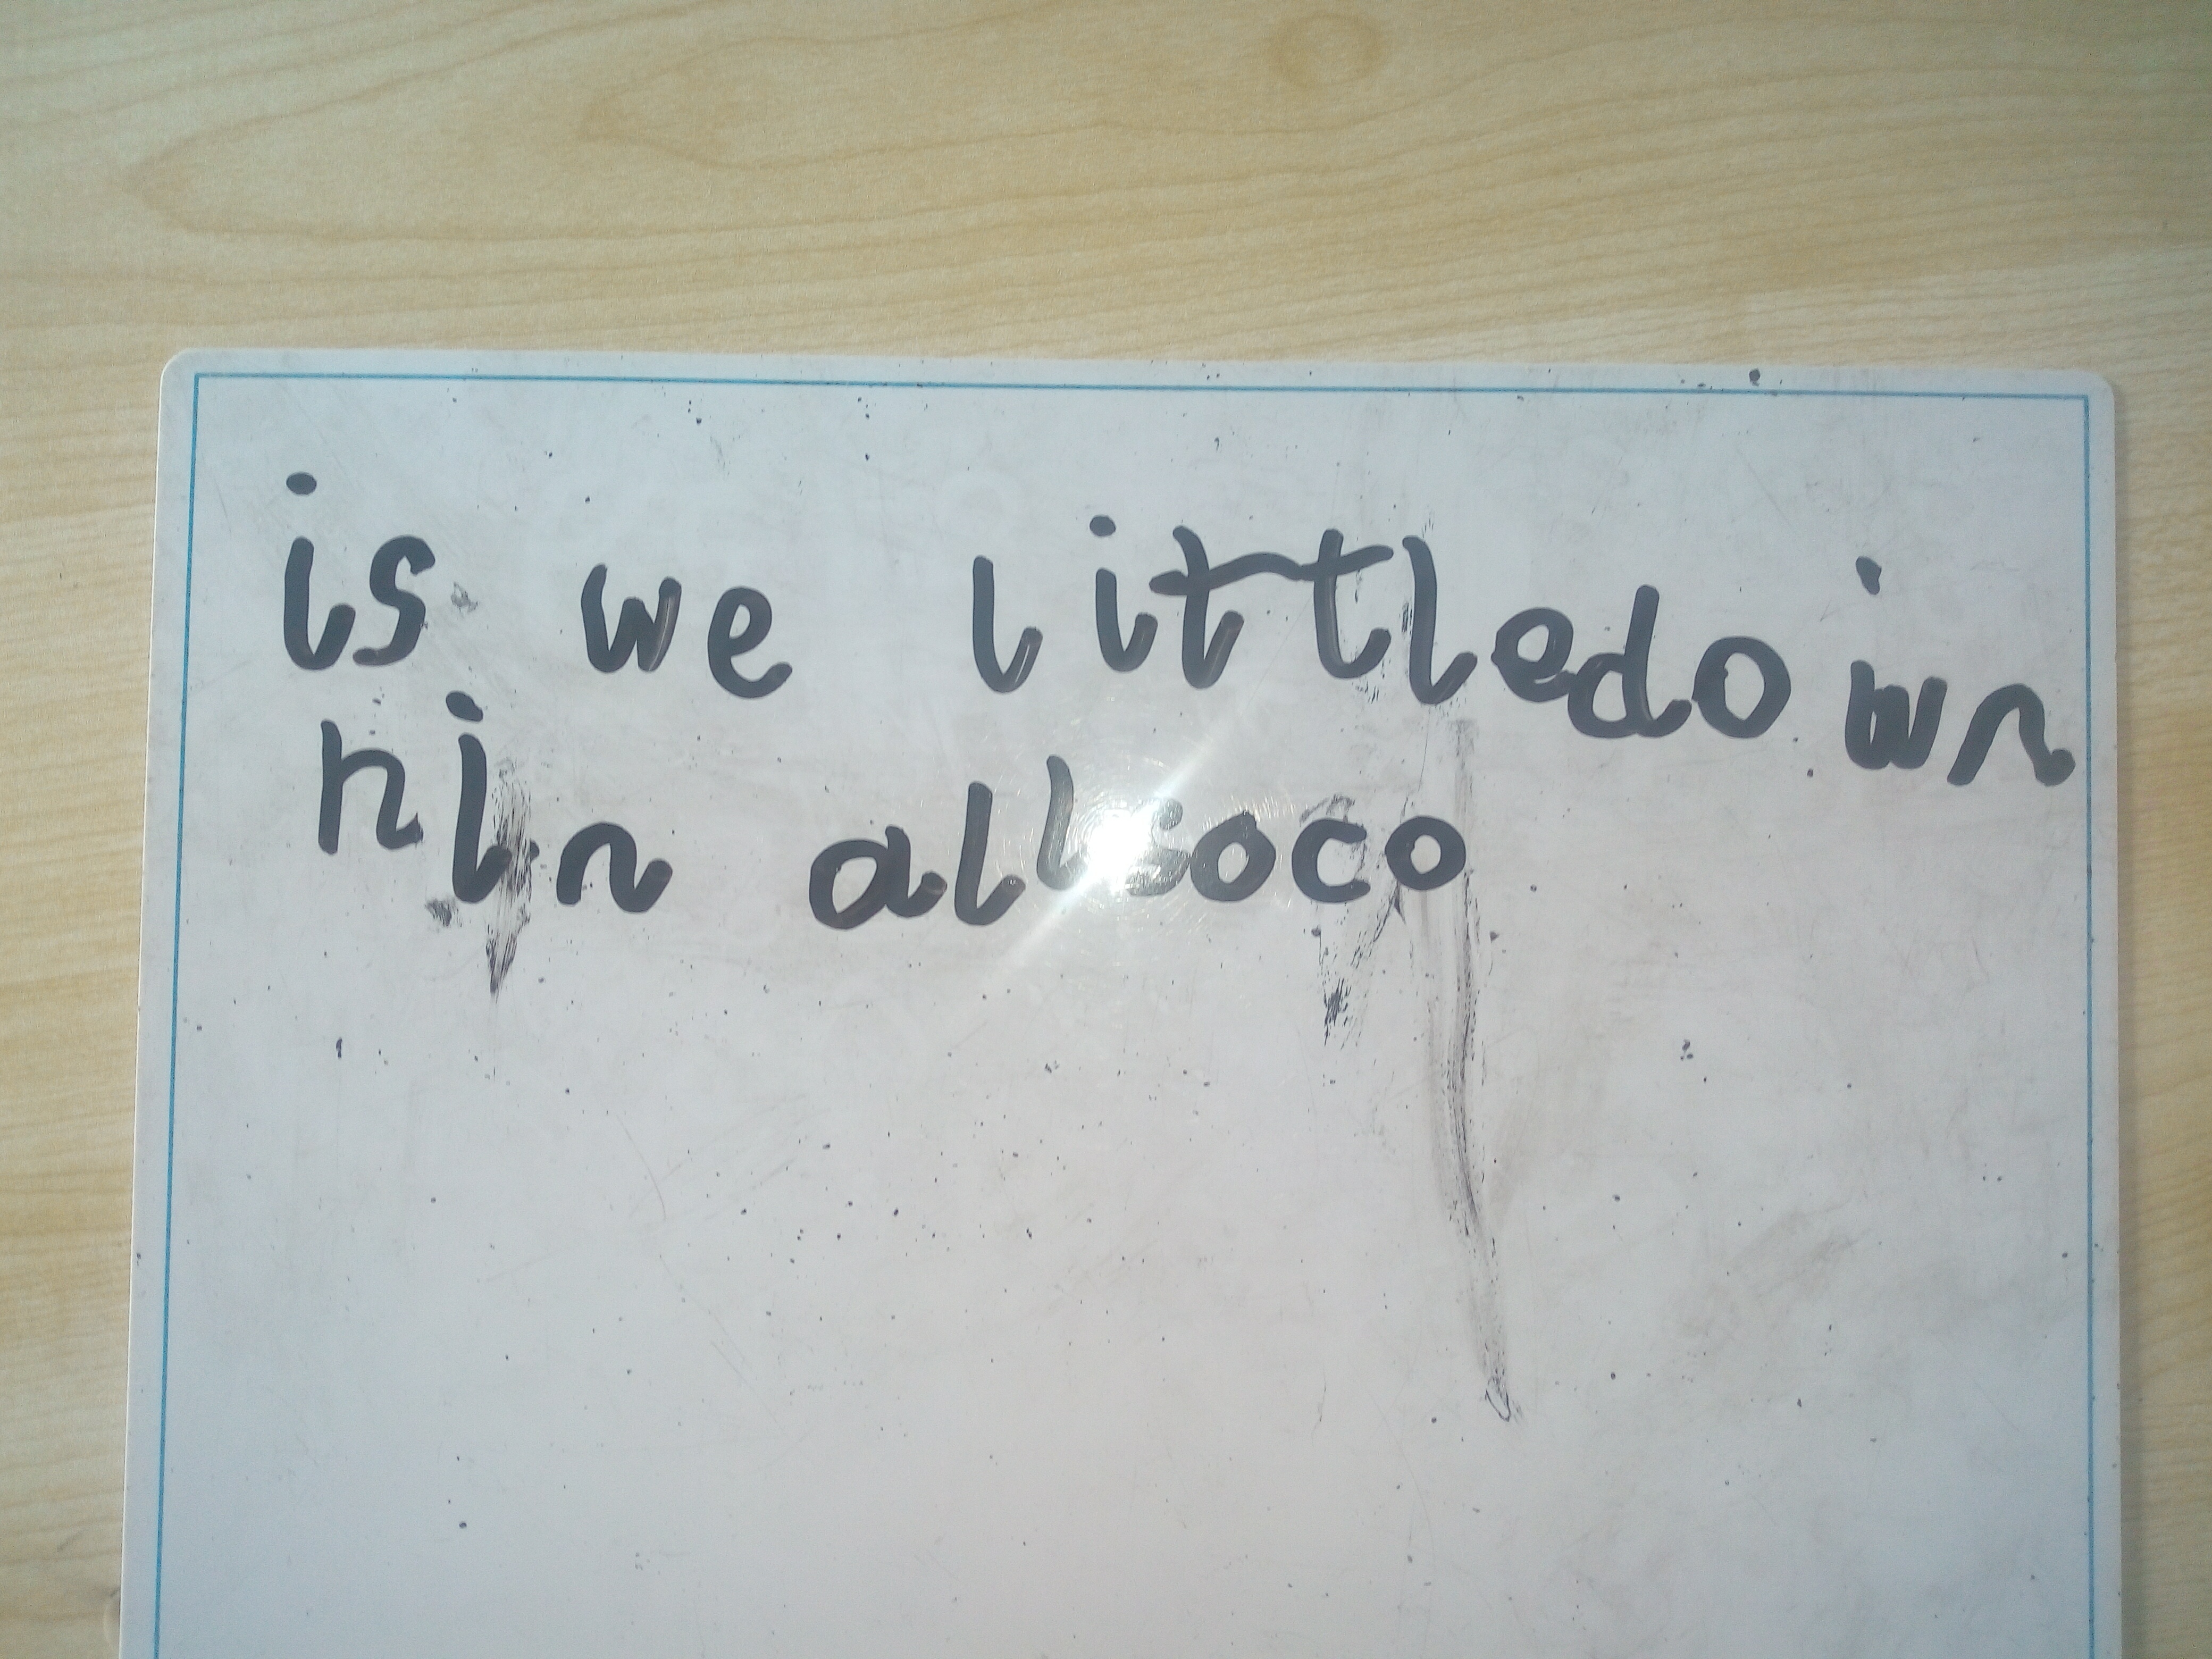 is we little down
nin all so co